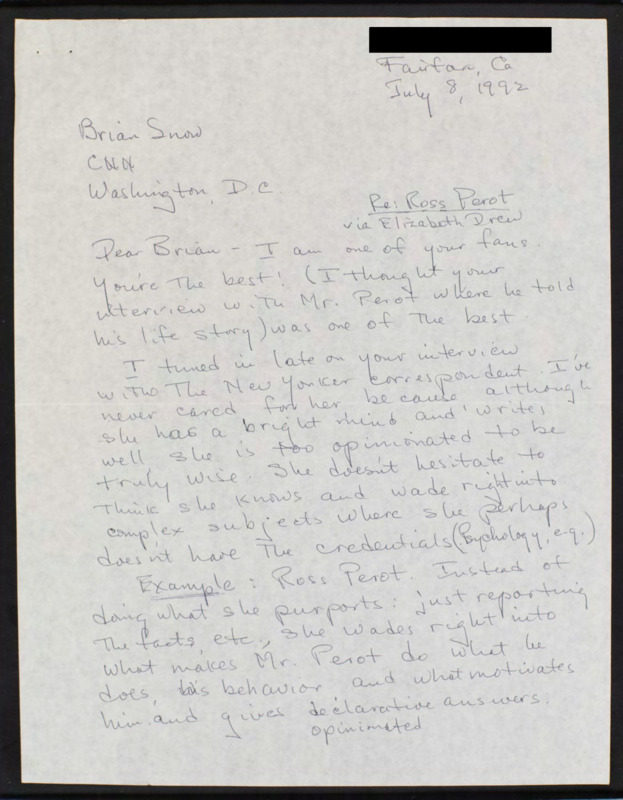 Fairfax, Ca
July 8, 1992
Brian Snow
CNN
Washington, D.C.
Re: Ross Perot
via Elizabeth Drew
Dear Brian - I am one of your fans.
You're the best! (I thought your
interview with Mr. Perot where he told
his life story) was one of the best.
I tuned in late on your interview
with The New Yorker correspondent. I've
never cared for her because although
she has a bright mind and writes
well she is too opinionated to be
truly wise. She doesn't hesitate to
think she knows and wade right into
complex subjects where she perhaps
doesn't have the credentials (Psychology, e.g.)
Example: Ross Perot. Instead of
doing what she purports: just reporting
the facts, etc., she wades right into
what makes Mr. Perot do what he
does, his behavior and what motivates
him and gives declarative answers.
opinimated